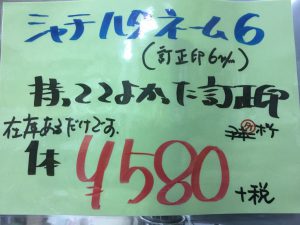 シャチハタネーム6
(訂正印6m/m)
持っててよかった訂正印
在庫あるだけです.
ボケ
1本 ¥580 +税